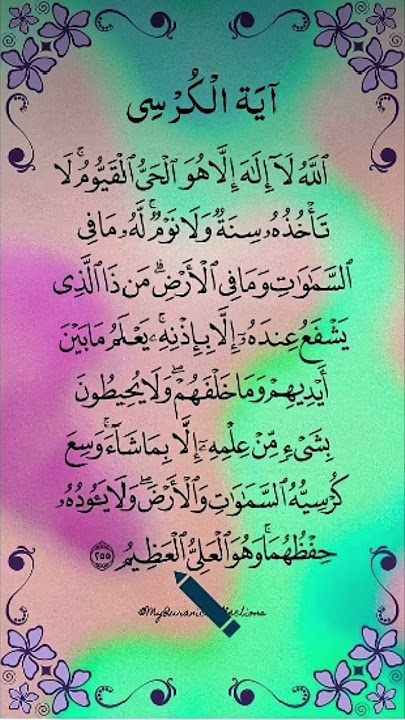 آيَة الْكُرْسِى
ٱللَّهُ لَآ إِلَٰهَ إِلَّا هُوَ ٱلْحَىُّ ٱلْقَيُّومُ ۚ لَا
تَأْخُذُهُۥ سِنَةٌ وَلَا نَوْمٌ ۚ لَّهُۥ مَا فِى
ٱلسَّمَٰوَٰتِ وَمَا فِى ٱلْأَرْضِ ۗ مَن ذَا ٱلَّذِى
يَشْفَعُ عِندَهُۥٓ إِلَّا بِإِذْنِهِۦ ۚ يَعْلَمُ مَا بَيْنَ
أَيْدِيهِمْ وَمَا خَلْفَهُمْ ۖ وَلَا يُحِيطُونَ
بِشَىْءٍ مِّنْ عِلْمِهِۦٓ إِلَّا بِمَا شَآءَ ۚ وَسِعَ
كُرْسِيُّهُ ٱلسَّمَٰوَٰتِ وَٱلْأَرْضَ ۖ وَلَا يَـُٔودُهُۥ
حِفْظُهُمَا ۚ وَهُوَ ٱلْعَلِىُّ ٱلْعَظِيمُ ‎﴿٢٥٥﴾